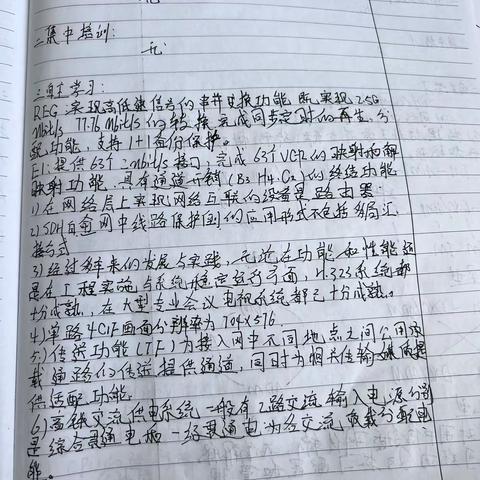 二集中培训:
无
三自主学习:
REG:实现高低速信号的串并变换功能,既实现2.5G
Mbit/s 77.76Mbit/s的转换,完成同步定时的再生、分
配功能,支持1+1备份保护。
E1:提供63个2mbit/s接口,完成63个VC12的映射和解
映射功能,具有通道开销(B3 H4 C2)的终结功能
1)在网络层上实现网络互联的设备是路由器.
2)SDH自愈网中线路保护倒的应用形式不包括多局汇
接方式
3)经过多年来的发展与实践,无论在功能和性能还
是在工程实施与系统稳定运行方面,H.323系统都
十分成熟,在大型专业会议电视系统都已十分成熟。
4)单路4CIF画面分辨率为704×576
5)传送功能(TF)为接入网中不同地点之间公用承
载通路的传送提供通道,同时为相关传输媒质提
供适配功能.
6)高频交流供电系统一般有2路交流输入电源分别
是综合贯通电和一级贯通电为各交流负载分配电
能。